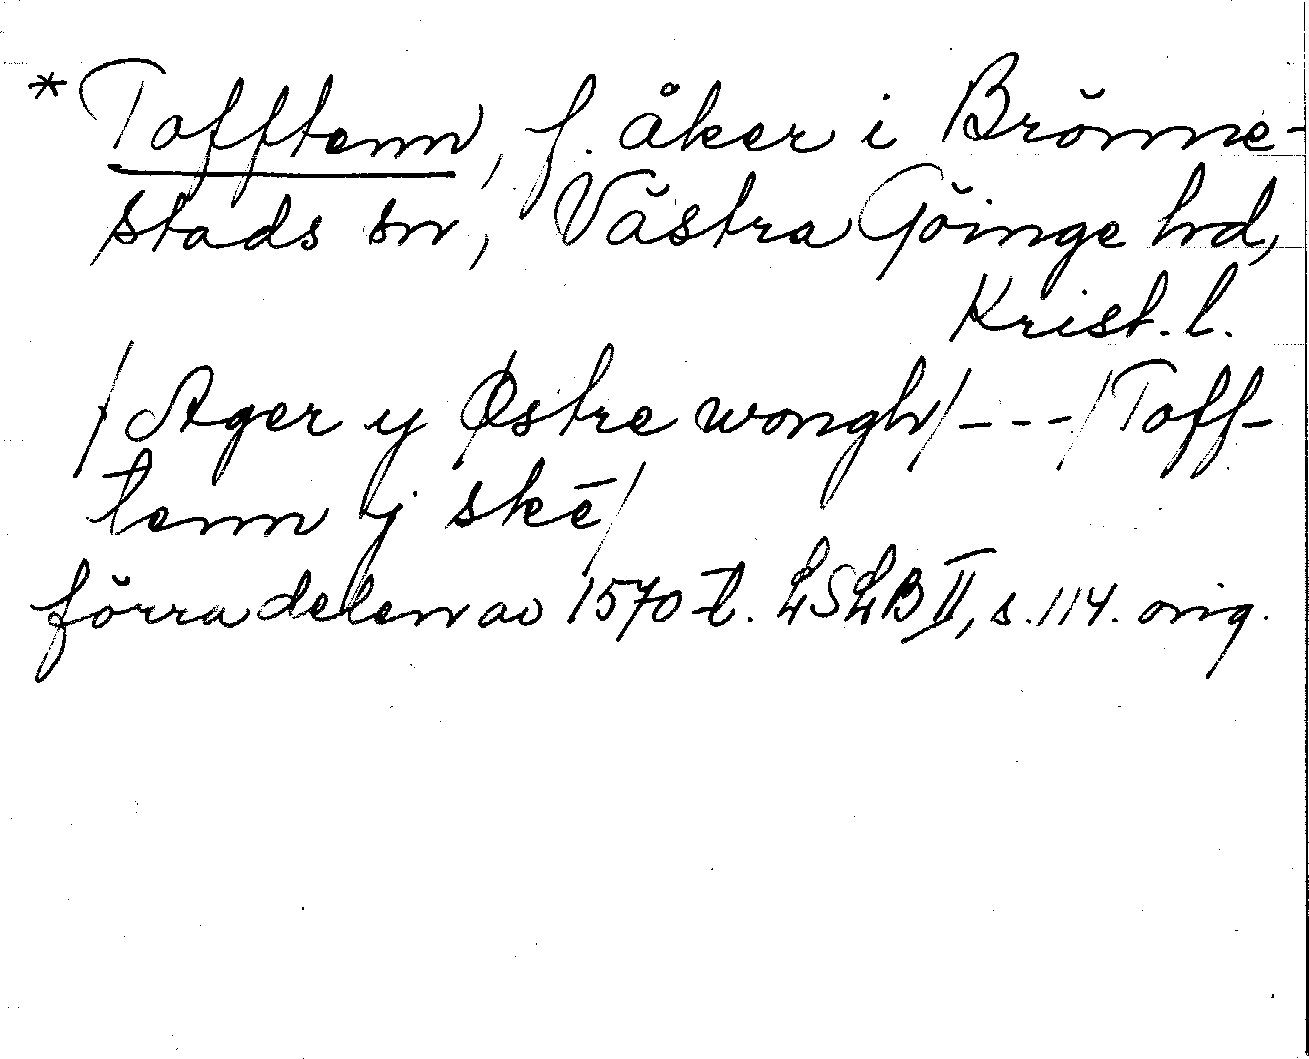 *Tofftenn, f. åker i Brönne-
stads sn, Västra Göinge hd,
Krist. l.
/Ager y Østre wongh/---/Toff-
tenn y skē/
förra delen av 1570-t. LSLB II, s. 114. orig.